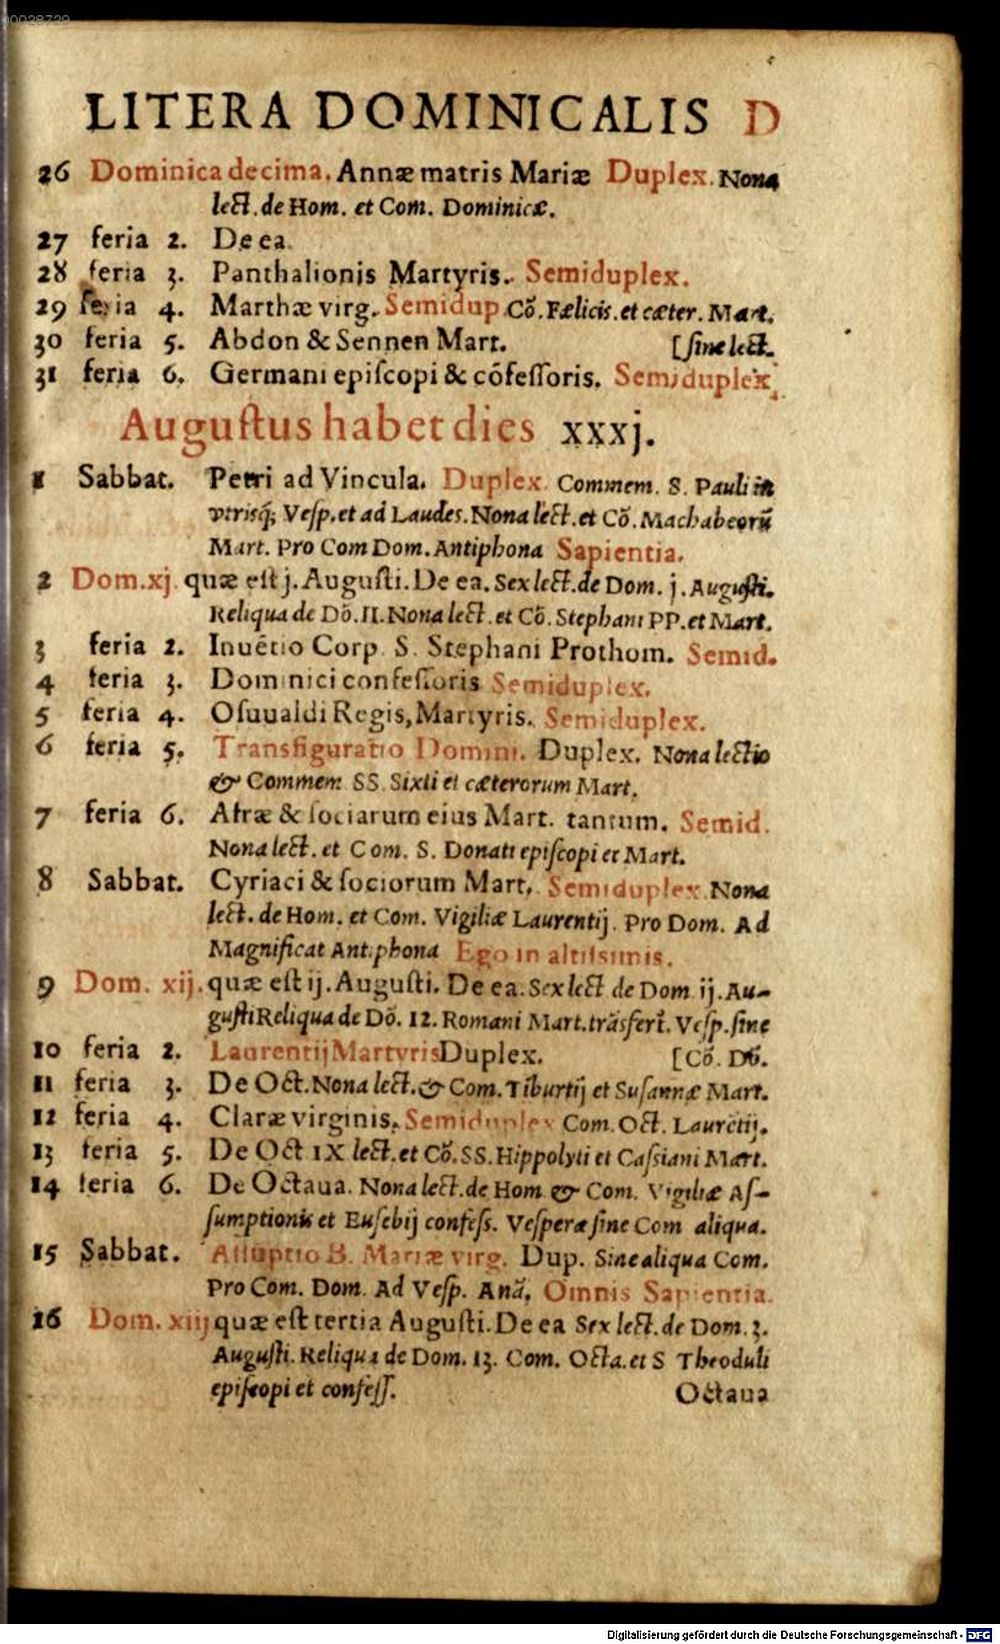 00028729
LITERA DOMINICALIS D
26 Dominica decima. Annæ matris Mariæ Duplex. Nona
lect. de Hom. et Com. Dominicæ.
27 feria 2. De ea.
28 feria 3. Panthalionis Martyris. Semiduplex.
29 feria 4. Marthæ virg. Semidup. Cõ. Fælicis. et cæter. Mart.
30 feria 5. Abdon & Sennen Mart. [ſine lect.
31 feria 6. Germani epiſcopi & cõfeſſoris. Semiduplex.
Auguſtus habet dies xxxj.
1 Sabbat. Petri ad Vincula. Duplex. Commem. S. Pauli in
vtrisq́; Veſp. et ad Laudes. Nona lect. et Cõ. Machabeorũ
Mart. Pro Com Dom. Antiphona Sapientia.
2 Dom. xj. quæ eſt j. Auguſti. De ea. Sex lect. de Dom. j. Auguſti.
Reliqua de Dõ. 11. Nona lect. et Cõ. Stephani PP. et Mart.
3 feria 2. Inuẽtio Corp. S. Stephani Prothom. Semid.
4 feria 3. Dominici confeſſoris Semiduplex.
5 feria 4. Oſuualdi Regis, Martyris. Semiduplex.
6 feria 5. Transfiguratio Domini. Duplex. Nona lectio
& Commem SS. Sixti et cæterorum Mart.
7 feria 6. Afræ & ſociarum eius Mart. tantum. Semid.
Nona lect. et Com. S. Donati epiſcopi et Mart.
8 Sabbat. Cyriaci & ſociorum Mart. Semiduplex. Nona
lect. de Hom. et Com. Vigiliæ Laurentij. Pro Dom. Ad
Magnificat Antiphona Ego in altiſsimis.
9 Dom. xij. quæ eſt ij. Auguſti. De ea. Sex lect de Dom ij. Au-
guſti Reliqua de Dõ. 12. Romani Mart. trãsfert. Veſp. ſine
10 feria 2. Laurentij Martyris Duplex. [Cõ. Dõ.
11 feria 3. De Oct. Nona lect. & Com. Tiburtij et Suſannæ Mart.
12 feria 4. Claræ virginis. Semiduplex Com. Oct. Laurẽtij.
13 feria 5. De Oct IX lect. et Cõ. SS. Hippolyti et Caſsiani Mart.
14 feria 6. De Octaua. Nona lect. de Hom & Com. Vigiliæ Aſ-
ſumptionis et Euſebij confeſs. Veſperæ ſine Com aliqua.
15 Sabbat. Aſſũptio B. Mariæ virg. Dup. Sine aliqua Com.
Pro Com. Dom. Ad Veſp. Anã. Omnis Sapientia.
16 Dom. xiij quæ eſt tertia Auguſti. De ea Sex lect. de Dom. 3.
Auguſti. Reliqua de Dom. 13. Com. Octa. et S Theoduli
epiſcopi et confeſſ. Octaua
Digitalisierung gefördert durch die Deutsche Forschungsgemeinschaft - DFG